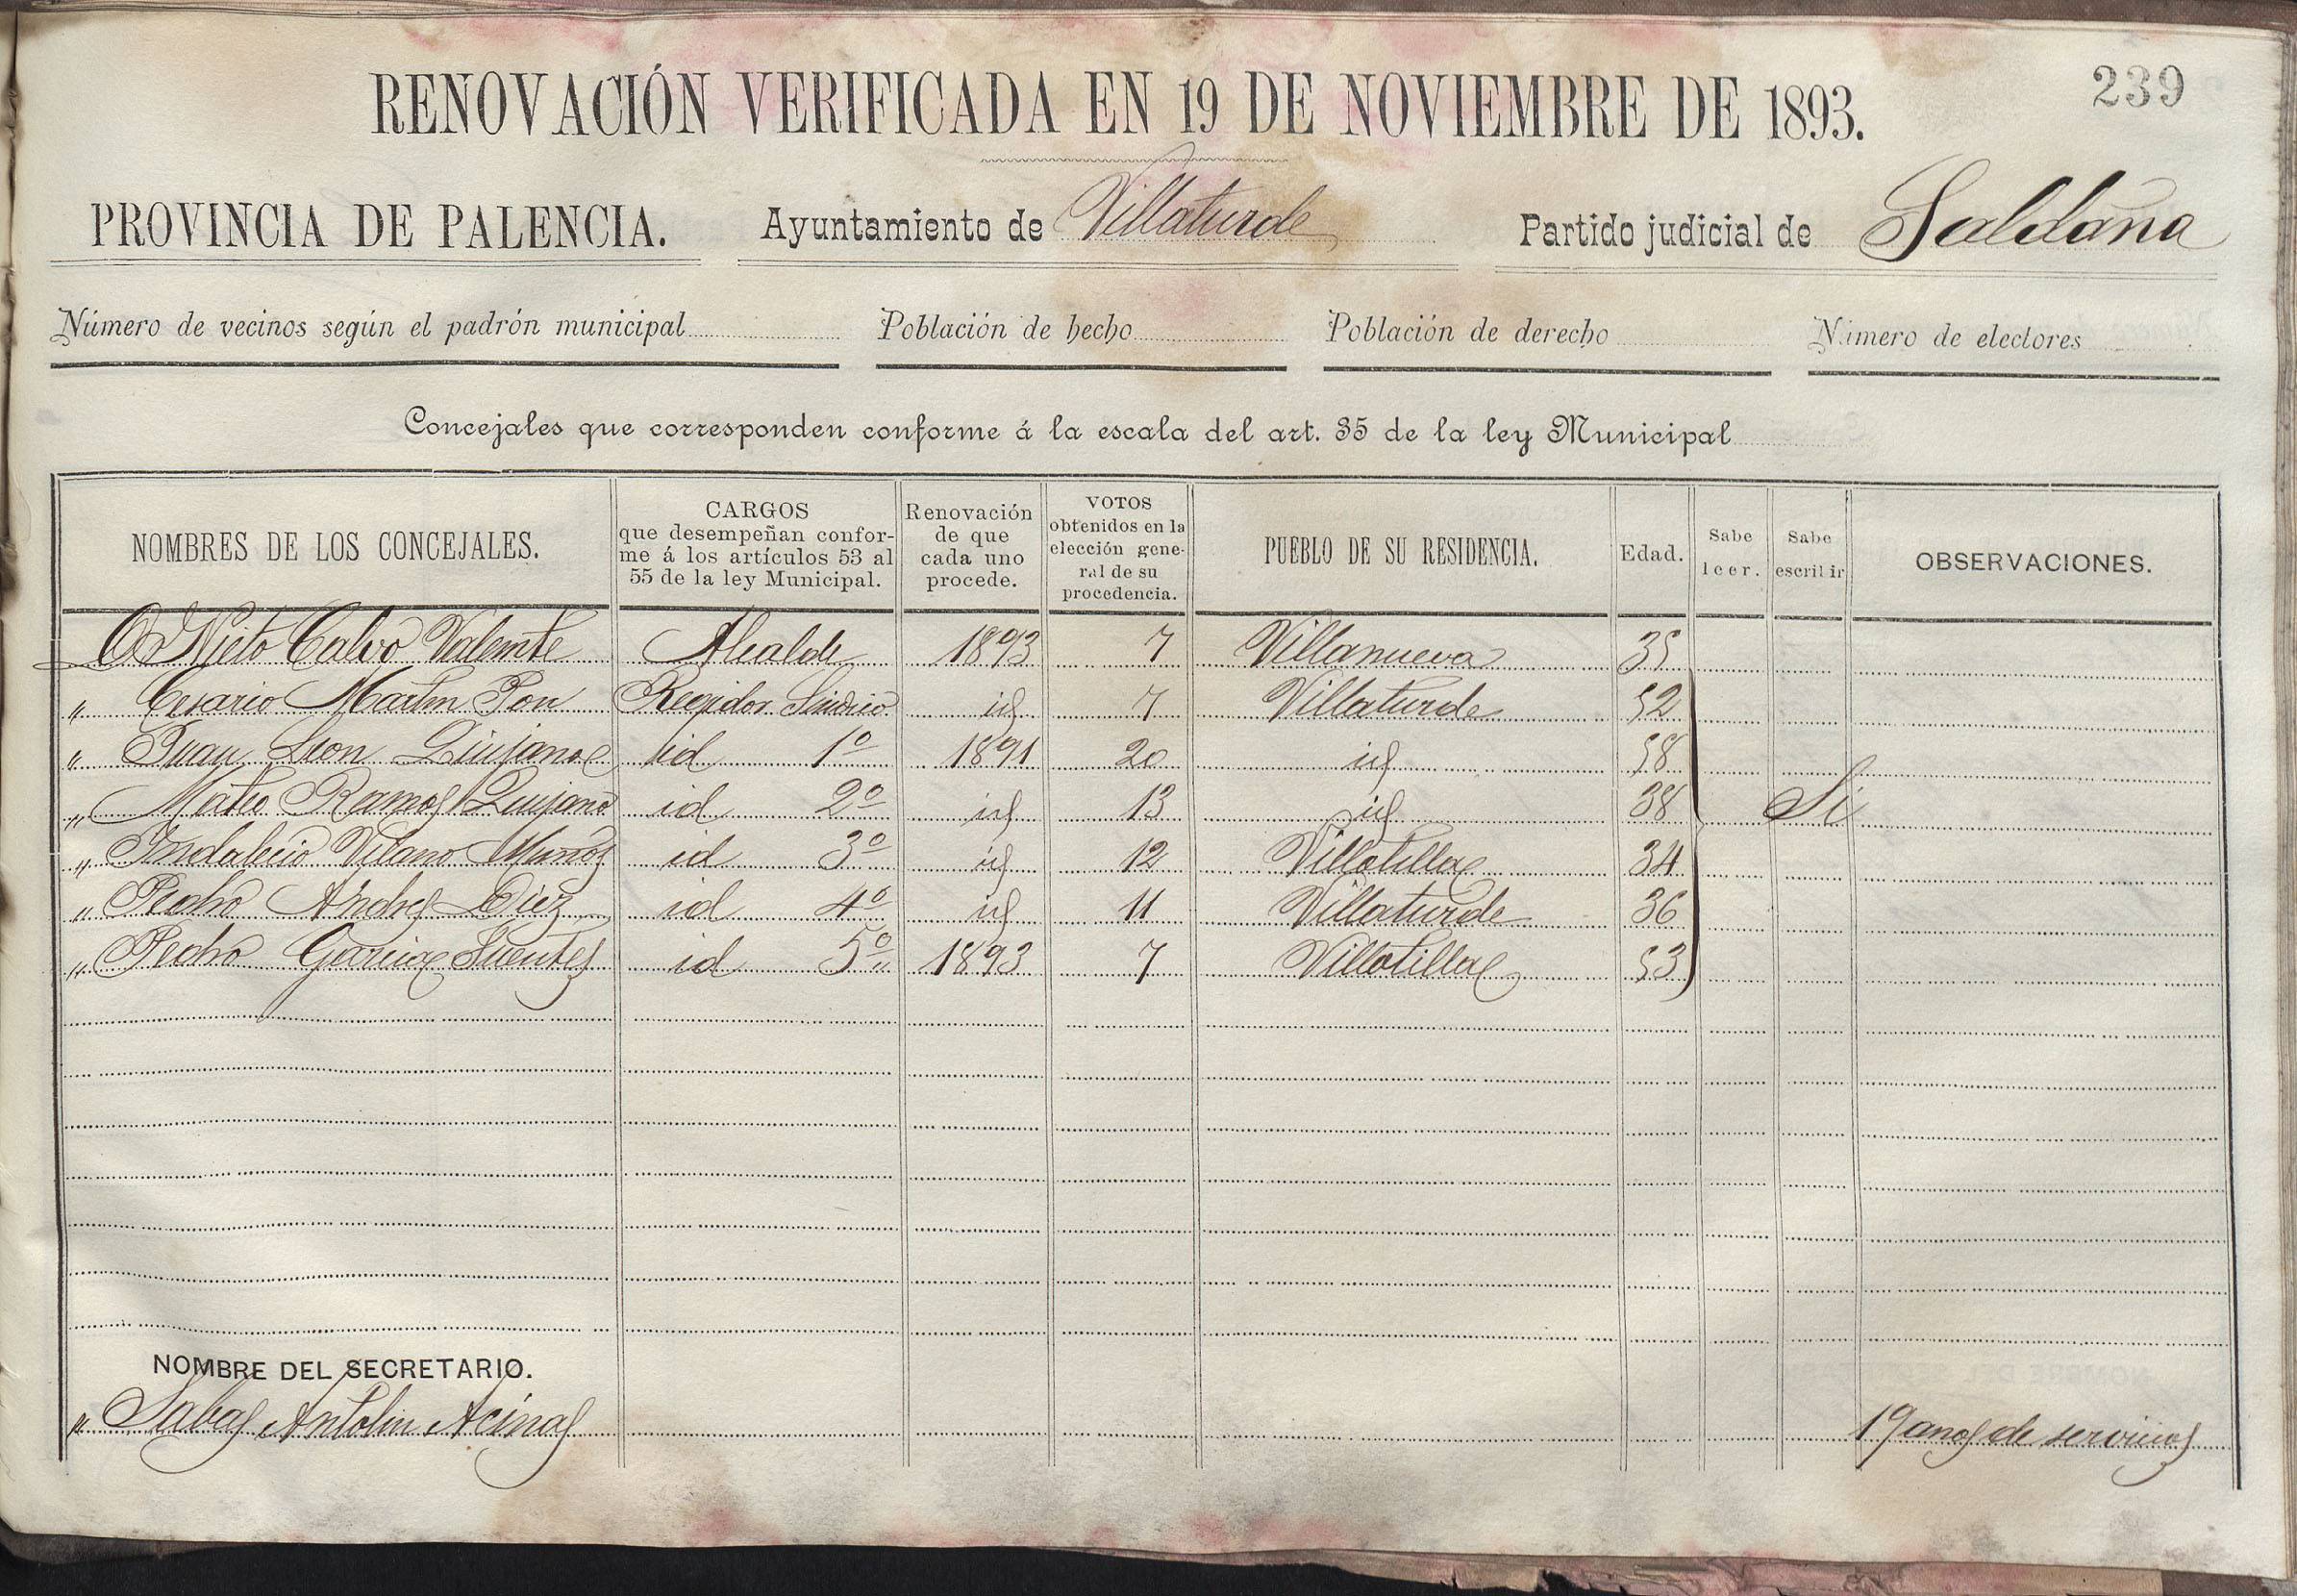 239
RENOVACIÓN VERIFICADA EN 19 DE NOVIEMBRE DE 1893.
PROVINCIA DE PALENCIA. Ayuntamiento de Villaturde Partido judicial de Saldaña
Número de vecinos según el padrón municipal Población de hecho Población de derecho Número de electores
Concejales que corresponden conforme á la escala del art. 35 de la ley Municipal
NOMBRES DE LOS CONCEJALES. CARGOS que desempeñan conforme á los artículos 53 al 55 de la ley Municipal. Renovación de que cada uno procede. VOTOS obtenidos en la elección general de su procedencia. PUEBLO DE SU RESIDENCIA. Edad. Sabe leer. Sabe escribir OBSERVACIONES.
D Nieto Calvo Valente Alcalde 1893 7 Villanueva 35
" Cesario Martin Pon Regidor Sindico id 7 Villaturde 52
" Juan Leon Quijano id 1º 1891 20 id 58
" Mateo Ramos Quijano id 2º id 13 id 38 Si
" Indalecio Vilano Muñoz id 3º id 12 Villotilla 34
" Pedro Andres Diez id 4º id 11 Villaturde 36
" Pedro Garcia Fuentes id 5º 1893 7 Villotilla 53
NOMBRE DEL SECRETARIO.
" Sabas Antolin Acinas 19 anos de servicios